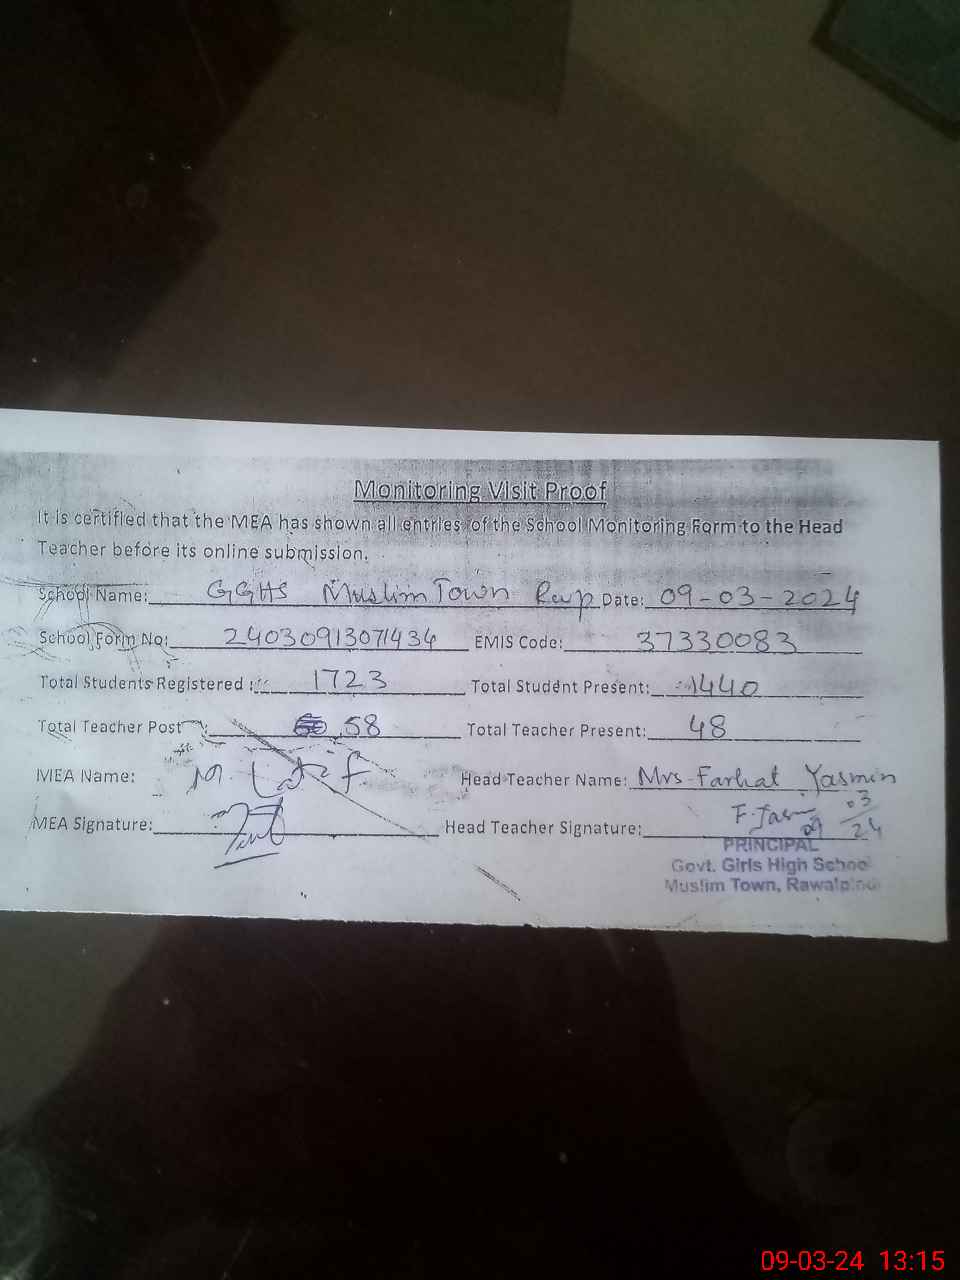 Monitoring Visit Proof
It is certified that the MEA has shown all entries of the School Monitoring Form to the Head
Teacher before its online submission.
School Name: GGHS Muslim Town Rwp Date: 09-03-2024
School Form No: 24030913071434 EMIS Code: 37330083
Total Students Registered : 1723 Total Student Present: 1440
Total Teacher Post : 58 Total Teacher Present: 48
MEA Name: M. Latif Head Teacher Name: Mrs Farhat Yasmin
MEA Signature: Head Teacher Signature: F. Yasmin 09/03/24
PRINCIPAL
Govt. Girls High School
Muslim Town, Rawalpindi
09-03-24 13:15